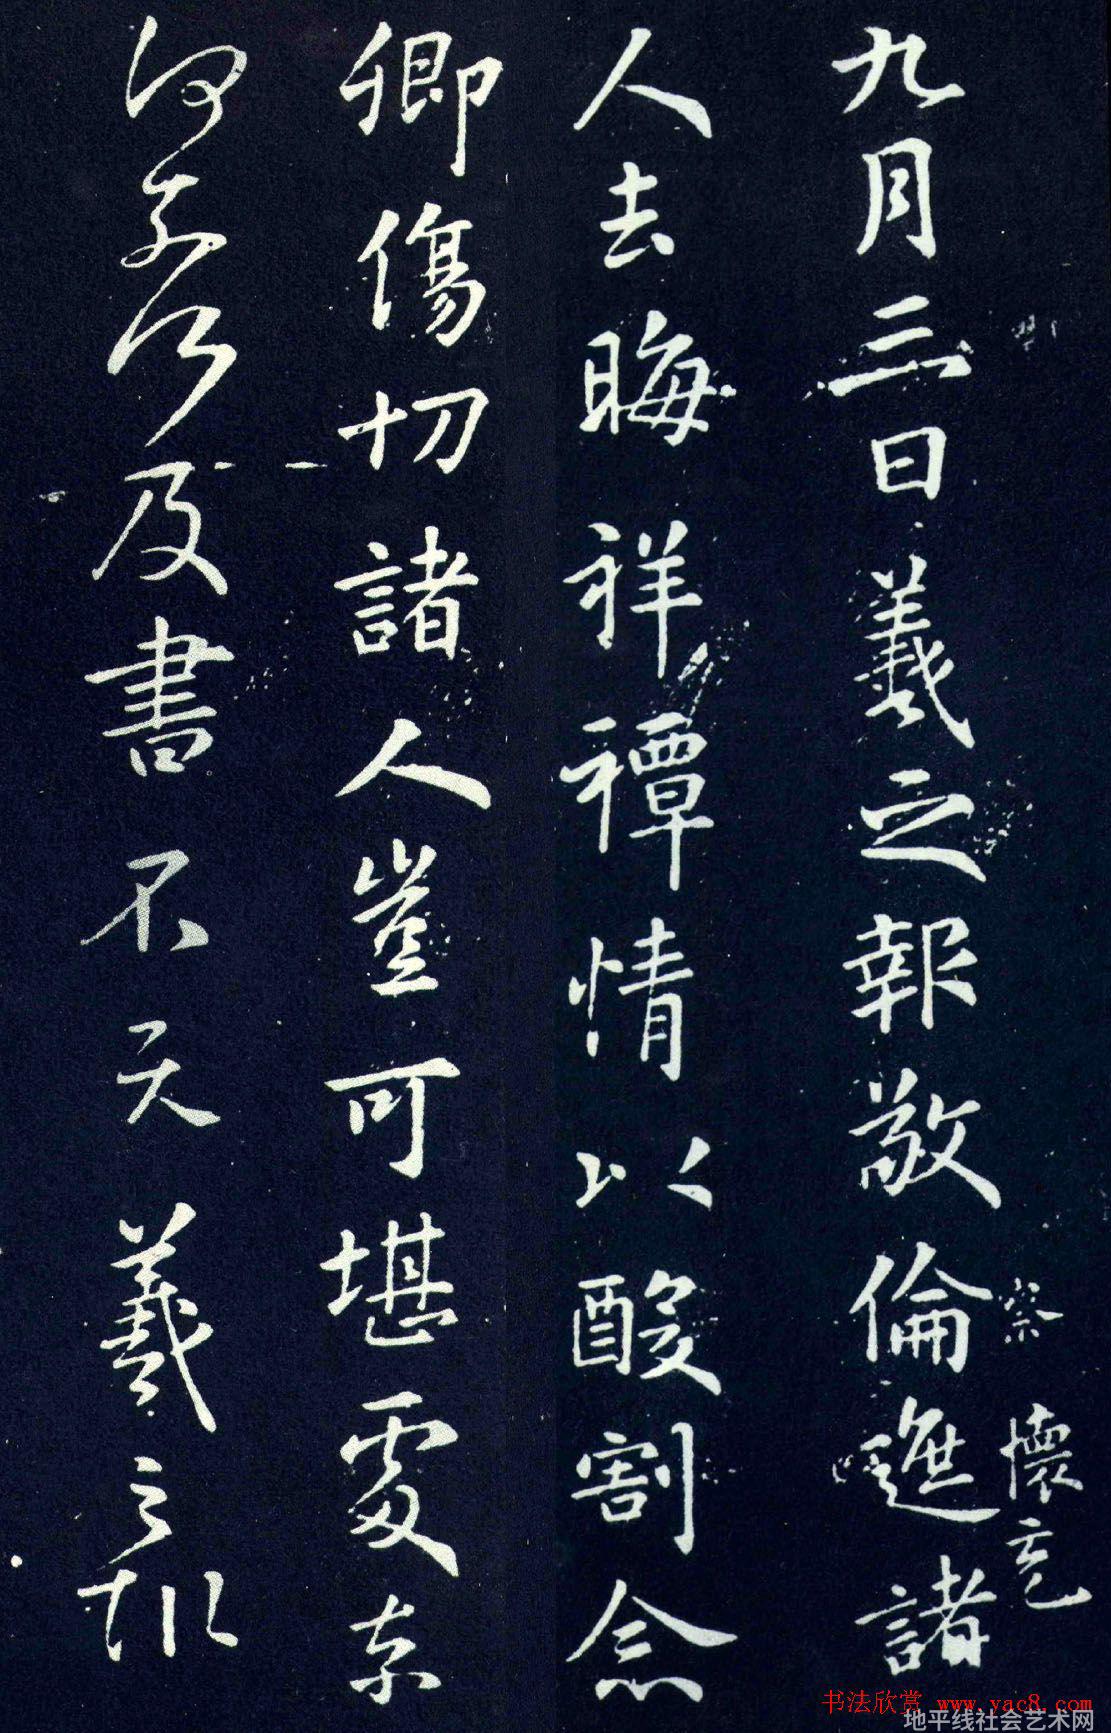 九月三日羲之報敬倫遮諸
察
懷充
人去晦祥禫情以酸割念
卿傷切諸人豈可堪處奈
何奈何及書不 羲之報
书法欣赏 www.yac8.com
地平线社会艺术网